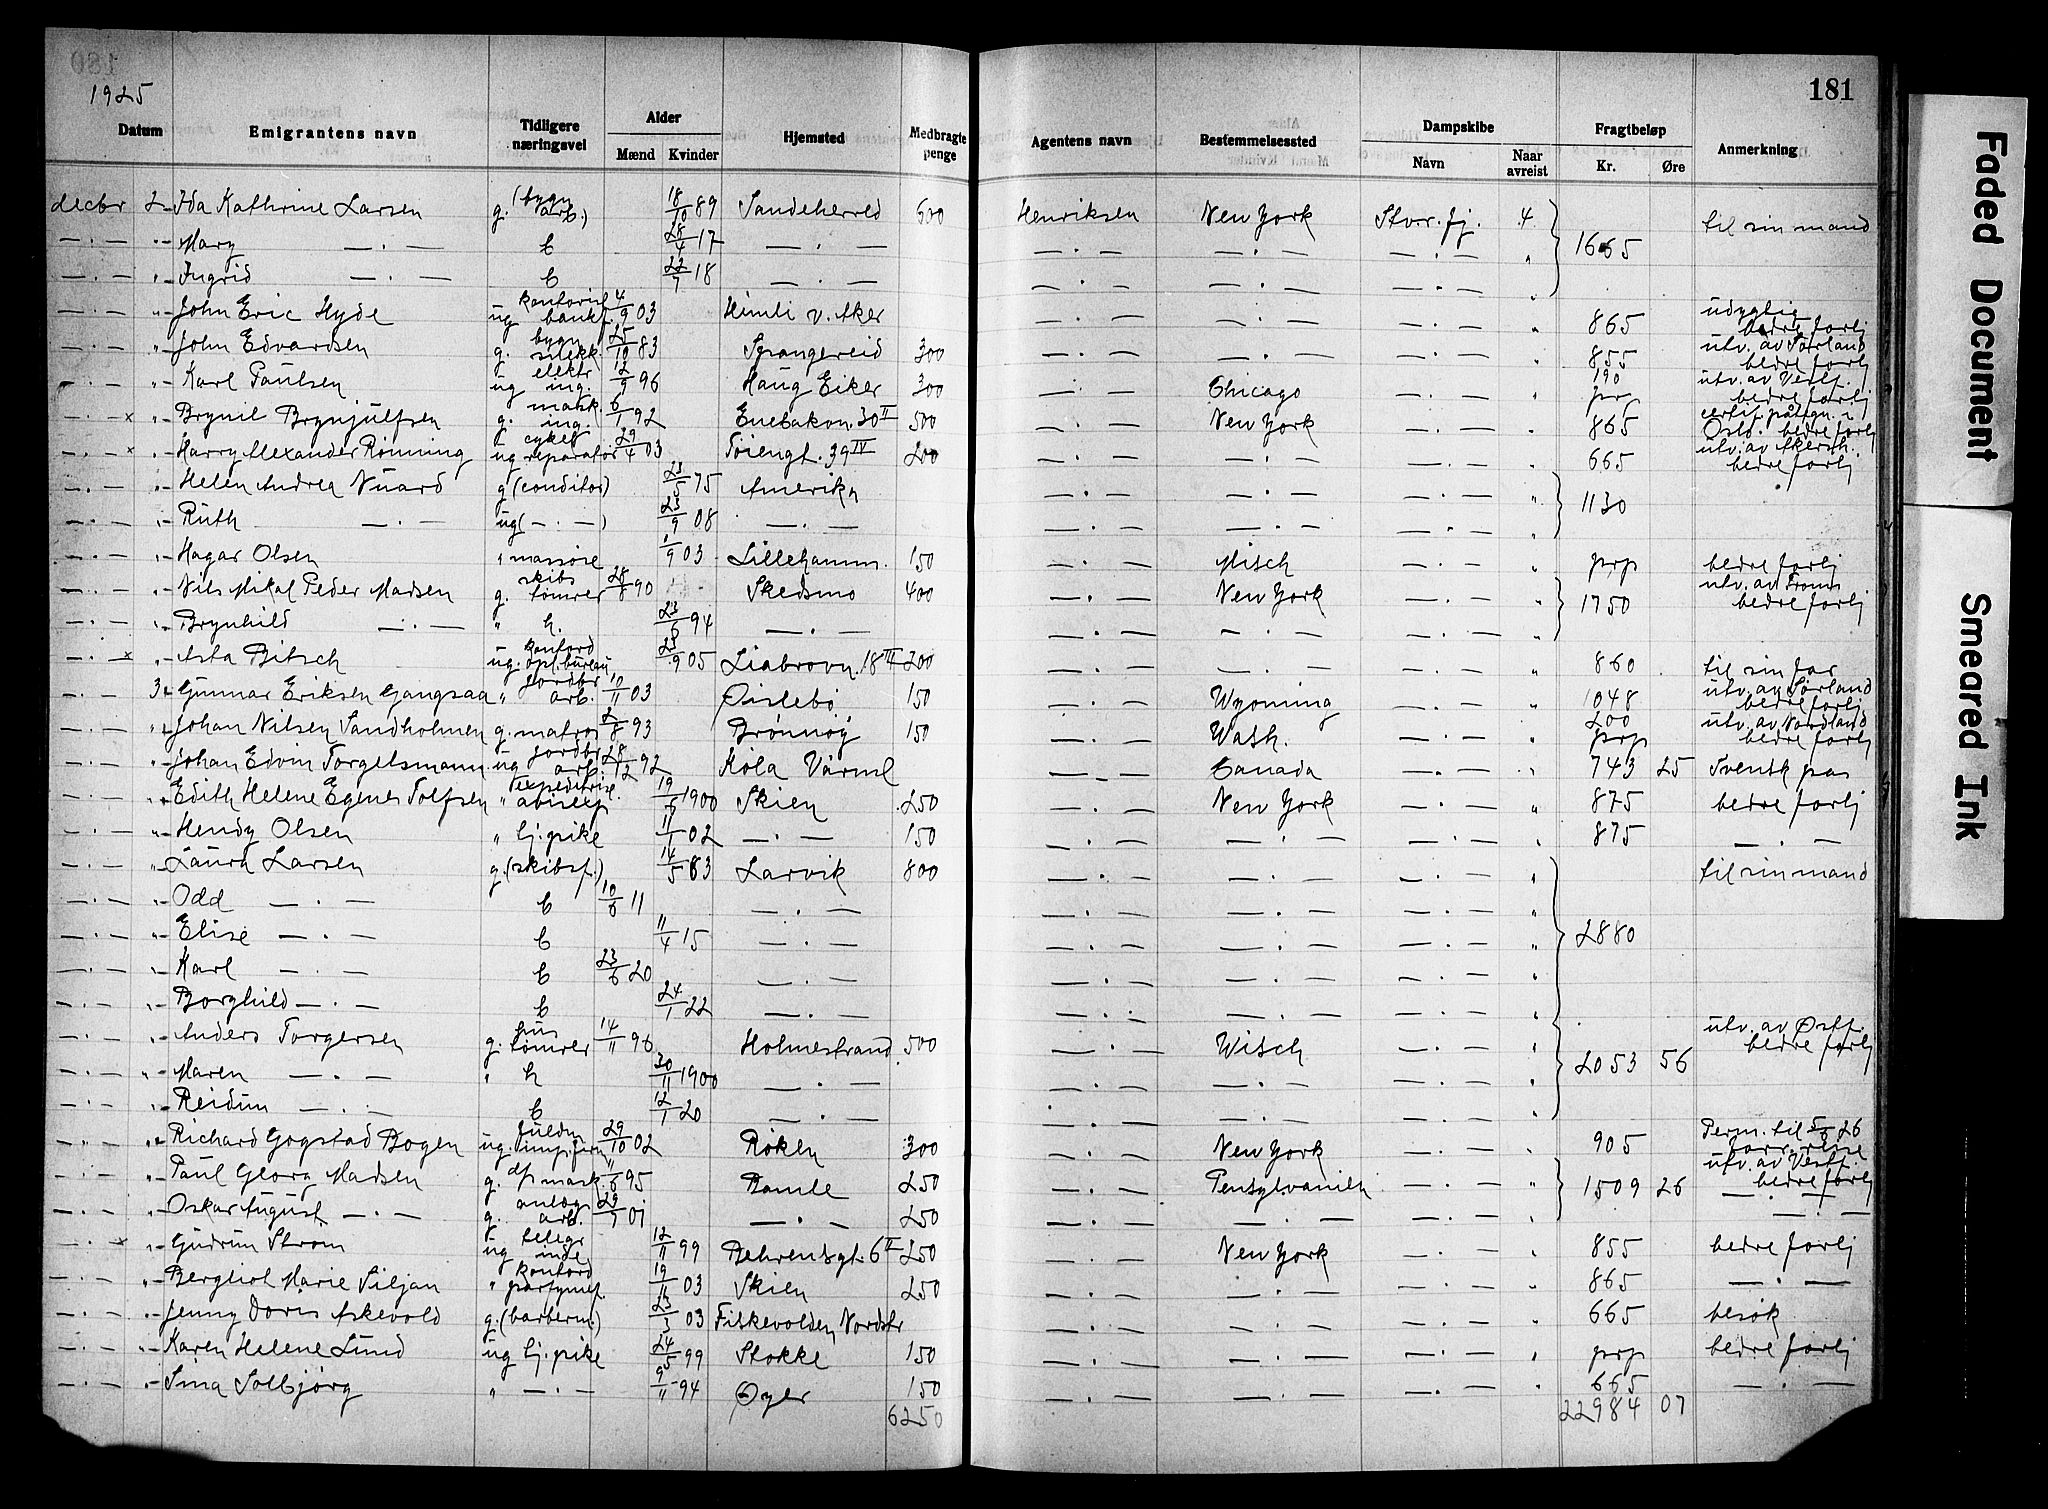 180
1925
181
Datum Emigrantens navn Tidligere næringsvei Alder Mænd Kvinder Hjemsted Medbragte penge Agentens navn Bestemmelsessted Dampskibe Navn Naar avreist Fragtbeløp Kr. Øre Anmerkning
decbr 2 Ida Kathrine Larsen g. (bygn arb.) 18/10 89 Sandeherred 600 Henriksen New York Stvr.fj. 4 til sin mand
— . — " Mary — . — b 28/4 17 — . — — . — — . — — . — " 1665
— . — " Ingrid — . — b 22/7 18 — . — — . — — . — — . — "
— . — " John Eric Hyde ug kontorist bankf. 4/9 03 Himli v. Aker — . — — . — — . — " 865 udygtig bedre forhj
— . — " John Edvardsen g. bygn snekk. 25/10 83 Spangereid 300 — . — — . — — . — " 855 utv. av Sørland bedre forhj
— . — " Karl Paulsen ug elektr ing. 12/9 96 Haug Eiker 300 — . — Chicago — . — " 190 prp utv. av Vestf. bedre forhj
— . — x " Brynil Brynjulfsen g. mask. ing. 6/1 92 Enebakvn. 30 II 500 — . — New York — . — " 865 certif. påtegn. i Oslo. bedre forhj
— . — x " Harry Alexander Rønning ug cykel reparatør 29/4 03 Tøiengt. 39 IV 200 — . — — . — — . — " 665 utv. av Akersh. bedre forhj
— . — " Helen Andrea Nuard g (conditor) 23/5 75 Amerika — . — — . — — . — " 1130
— . — " Ruth — . — ug (— . —) 23/9 08 — . — — . — — . — — . — "
— . — " Hagar Olsen " massøse 1/9 03 Lillehamm. 150 — . — Misch — . — " prp bedre forhj
— . — " Nils Mikal Peder Madsen g. skibs tømrer 28/8 90 Skedsmo 400 — . — New York — . — " 1750 utv. av Troms bedre forhj
— . — " Brynhild — . — " h. 23/6 94 — . — — . — — . — — . — "
— . — x " Asta Bitsch ug. kontord opl.bureau 23/9 05 Liabrovn. 18 III 200 — . — — . — — . — " 860 til sin far
— . — 3 Gunnar Eriksen Gangsaa " jordbr arb. 10/11 03 Øislebø 150 — . — Wyoming — . — " 1048 utv. av Sørland bedre forhj
— . — " Johan Nilsen Sandholmen g. matros 2/8 93 Brønnøy 150 — . — Wash. — . — " 200 prp utv. av Nordland bedre forhj
— . — " Johan Edvin Torgelsmann ug jordbr arb. 28/12 92 Köla Värml — . — Canada — . — " 743 25 Svensk pas
— . — " Edith Helene Egenes Tolfsen " expeditrise avisexp 19/6 1900 Skien 250 — . — New York — . — " 875 bedre forhj
— . — " Hendy Olsen " tj. pike 11/1 02 — . — 150 — . — — . — — . — " 875 — . —
— . — " Laura Larsen g. (skibsf.) 14/5 83 Larvik 800 — . — — . — — . — " til sin mand
— . — " Odd — . — b 10/6 11 — . — — . — — . — — . — "
— . — " Elise — . — b 11/4 15 — . — — . — — . — — . — " 2880
— . — " Karl — . — b 23/6 20 — . — — . — — . — — . — "
— . — " Borghild — . — b 24/1 22 — . — — . — — . — — . — "
— . — " Anders Torgersen g. hus tømrer 14/11 96 Holmestrand 500 — . — Wisch — . — " utv. av Østf. bedre forhj
— . — " Maren — . — " h 30/11 1900 — . — — . — — . — — . — " 2053 56
— . — " Reidun — . — b 12/1 20 — . — — . — — . — — . — "
— . — " Richard Gogstad Bogen ug 29/10 02 Røken 300 — . — New York — . — " 905 Perm. til 5/6 26
— . — " Paul Georg Madsen g. dpmask. 11/6 95 Bamle 250 — . — Pensylvanien — . — " 1509 26 utv. av Vestf. bedre forhj
— . — " Oskar August — . — g. anlæg arb. 29/7 01 — . — 250 — . — — . — — . — " — . —
— . — x " Gudrun Strøm ug telegr inde 12/11 99 Behrensgt. 6 II 250 — . — New York — . — " 855 bedre forhj
— . — " Bergliot Marie Siljan " kontord parfymef. 19/11 03 Skien 250 — . — — . — — . — " 865 — . —
— . — " Jenny Doris Askevold g. (barberm.) 23/3 03 Fiskevolden Nordstr — . — — . — — . — " 665 besøk
— . — " Karen Helene Lund ug tj. pike 24/5 99 Stokke 150 — . — — . — — . — " prp bedre forhj
— . — " Sina Solbjørg " — . — 9/11 94 Øyer 150 — . — — . — — . — " 665 — . —
6250 22984 07
Faded Document
Smeared Ink